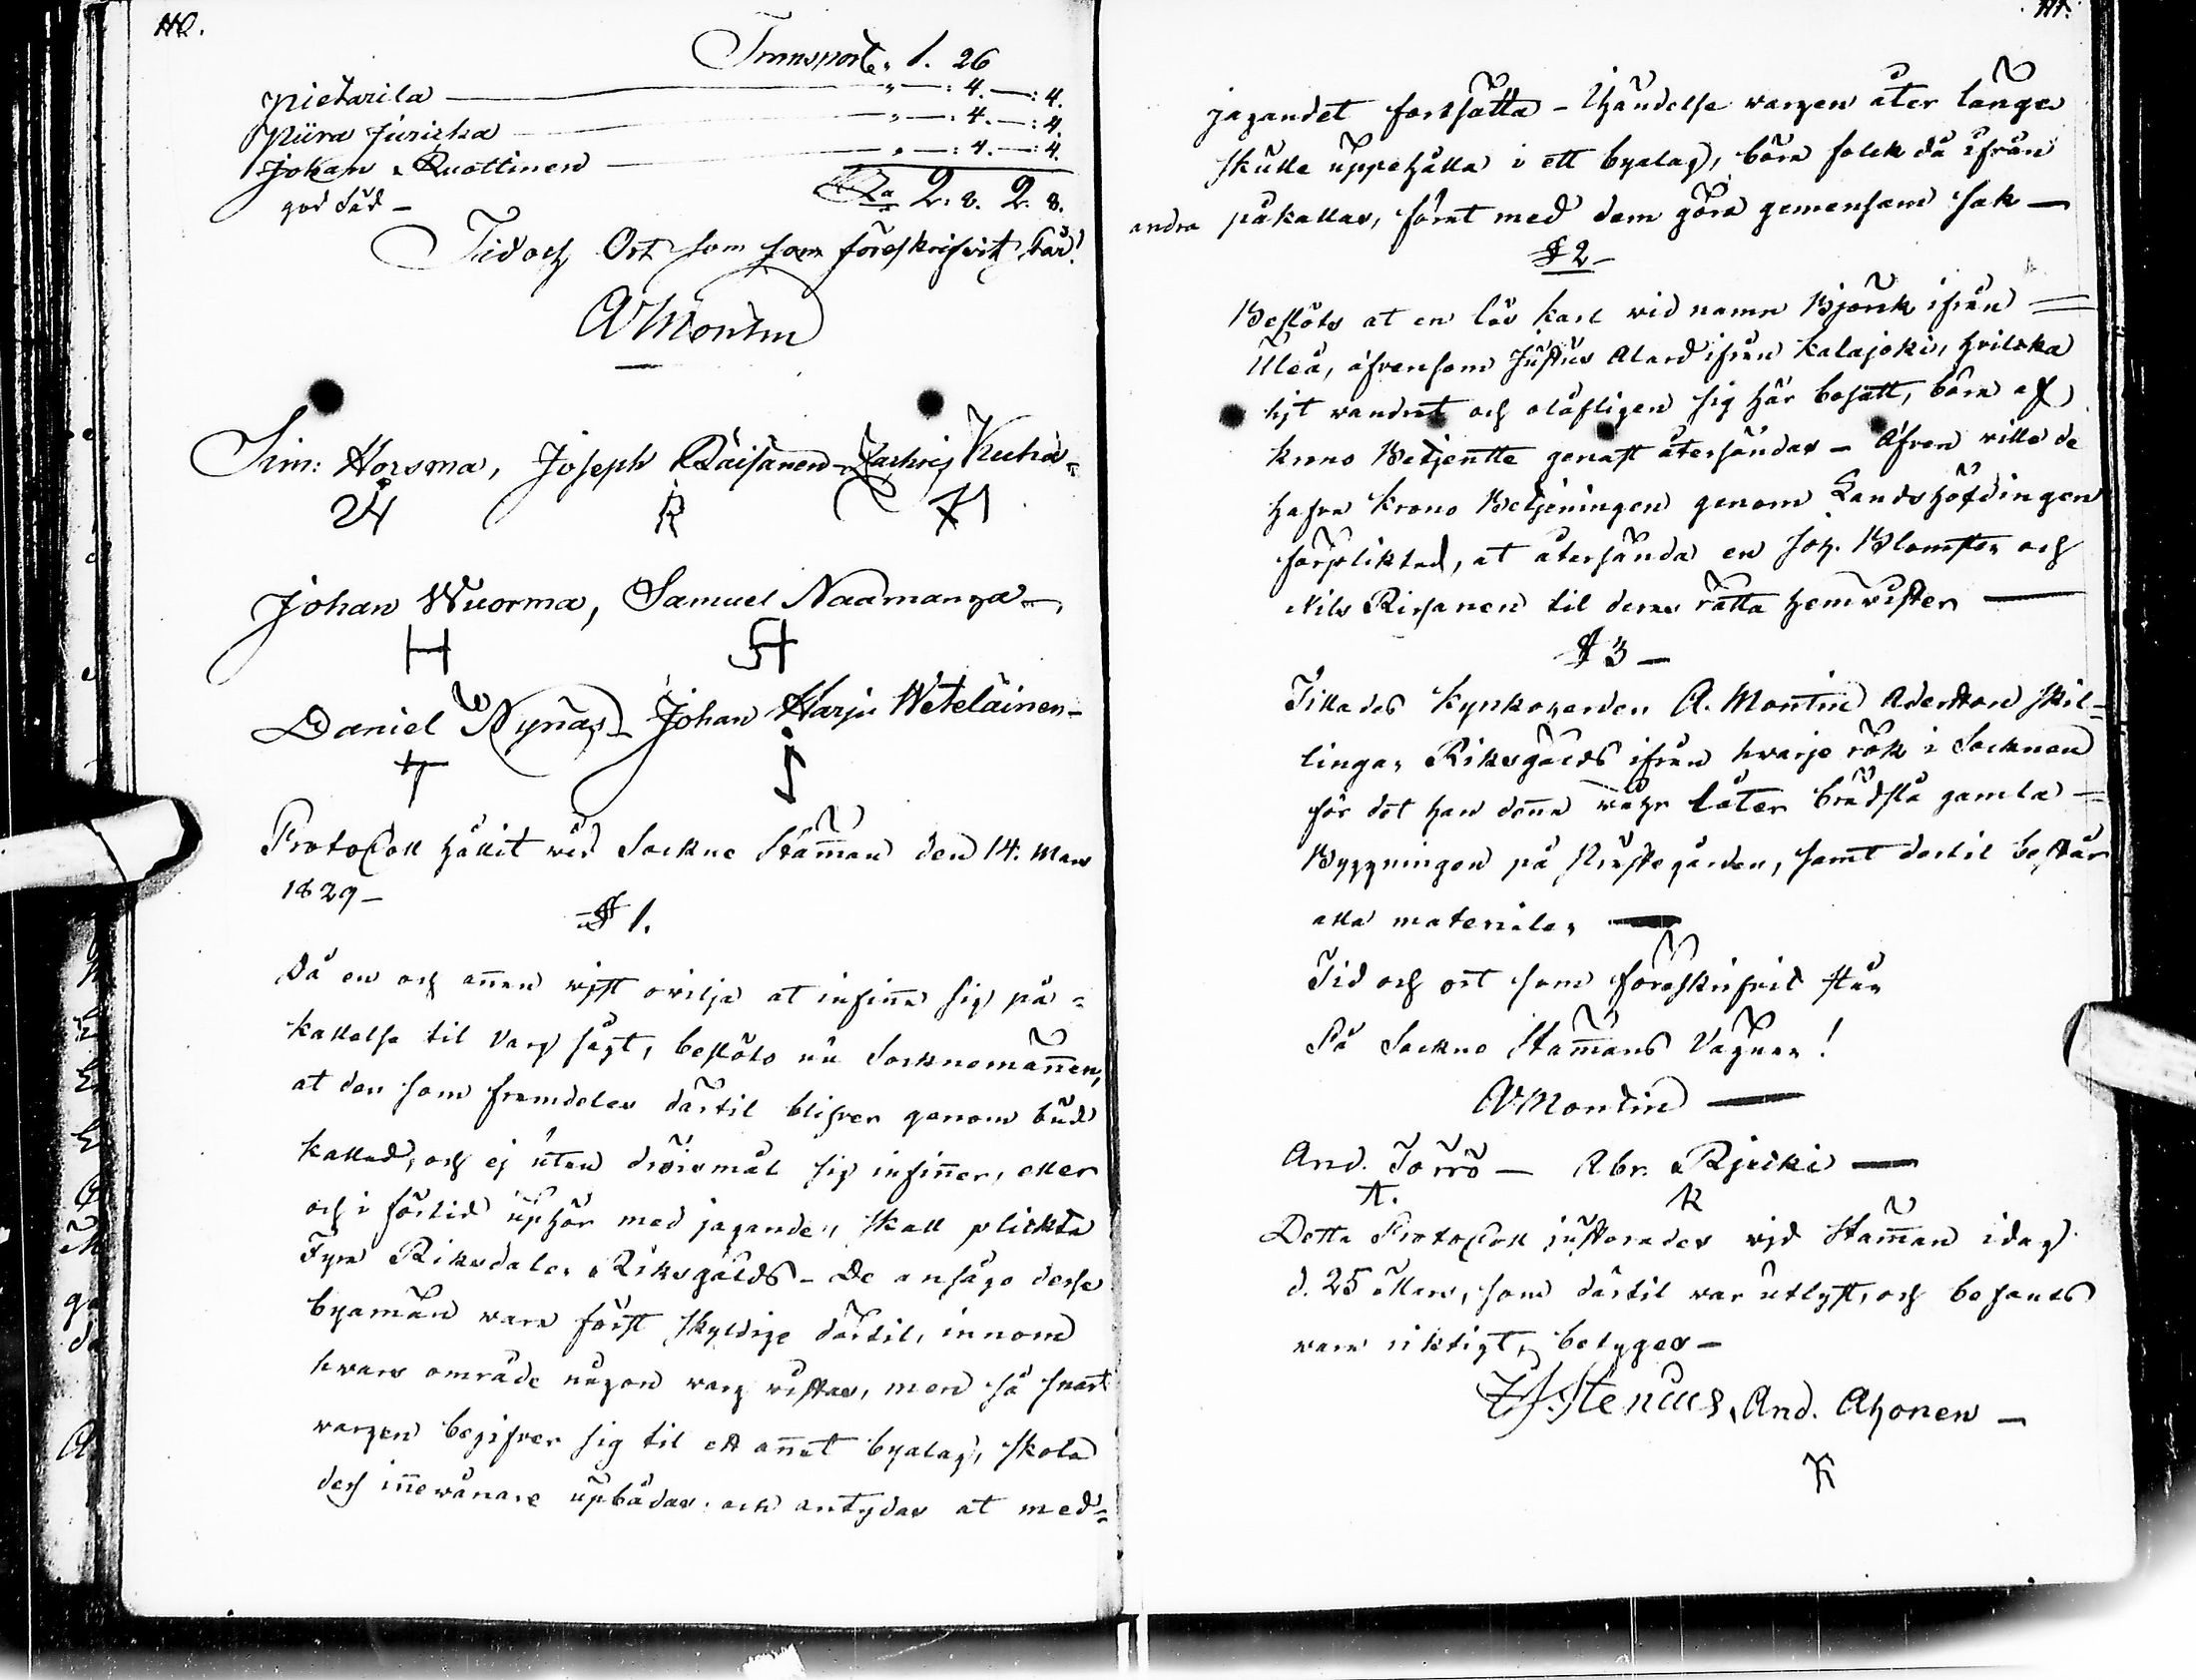 110.
Transport, 1. 26
Pietarila — " — : 4. — : 4.
Piira Juricka — " — : 4. — : 4.
Johan Ruottinen — " — : 4. — : 4.
god säd — Sa 2. 8. 2. 8.
Tid och Ort som som föreskrifvit står!
A Montin
Sim: Horsma, Joseph Räisänen, Zachris Kuha-
Johan Wuorma, Samuel Naamanga —,
H
Daniel Nynäs — Johan Harju Weteläinen —
Protocoll hållit wid Sockne Stämman den 14. Mars
1829 —
§ 1.
Då en och annan wist ovilja at infinna sig på-
kallelse til Varg jagt, beslöts nu Socknemännen,
at den som framdeles därtil blifver genom bud
kallad, och ej utan dröjsmål sig infinner, eller
och i förtid uphör med jagandet, skall plickta
Fyra Riksdaler Riksgälds — De ansågo desse
byamän wara först skyldige därtil, innom
hvars område någon warg vistas, men så snart
wargen begifver sig til ett annat byalag, skola
dess innewånare upbådas och antydas at med-
111.
jagandet fortsätta — Händelse wargen åter länge
skulle uppehålla i ett byalag, böra folck då ifrån
andra påkallas, samt med dem göra gemensam sak —
§ 2 —
Beslöts at en lös karl vid namn Björk ifrån
Uleå, äfvensom Justus Alard ifrån Kalajoki, hvilcka
hit vandrat och olofligen sig här bosatt, böra af
krono Betjente genast återsändas — Äfven ville de
hafva krono Betjeningen genom Landshöfdingen
förpliktad, at återsända en Joh. Blomster och
Nils Risanen til deras rätta hemvister —
§ 3 —
Tillades Kyrkoherden A. Montin Aderton skil-
lingar Riksgälds ifrån hwarje rök i Socknen
för det han denna wåhr låter brädslå gamla
Byggningen på Prästegården, samt dertil består
alla materialer —
Tid och ort som föreskrifvit står
På Sockne Stämans Vägnar!
A Montin —
And. Torro — Abr. Rjecki —
A. R
Detta Protocoll justerades wid Stämman idag
d. 25 Mars, som därtil var utlyst, och befants
vara riktigt, betygas —
Z. Stenius, And. Ahonen —